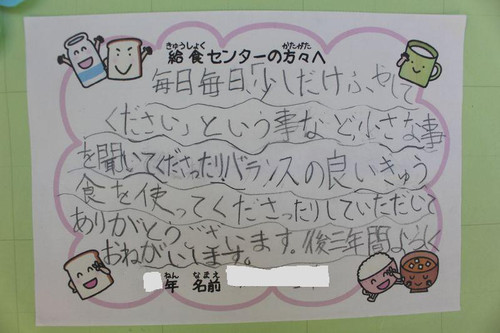 給食センターの方々へ
毎日毎日「少しだけふやして
ください」という事など小さな事
を聞いてくださったりバランスの良いきゅう
食を使ってくださったりしていただいて
ありがとうございます。後三年間よろしく
おねがいします。
年 名前